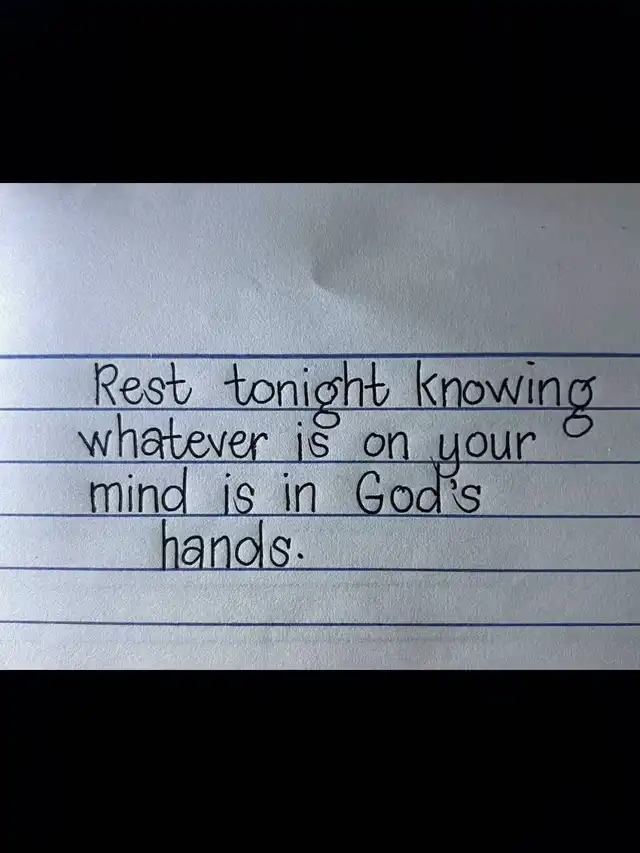 Rest tonight knowing
whatever is on your
mind is in God's
hands.